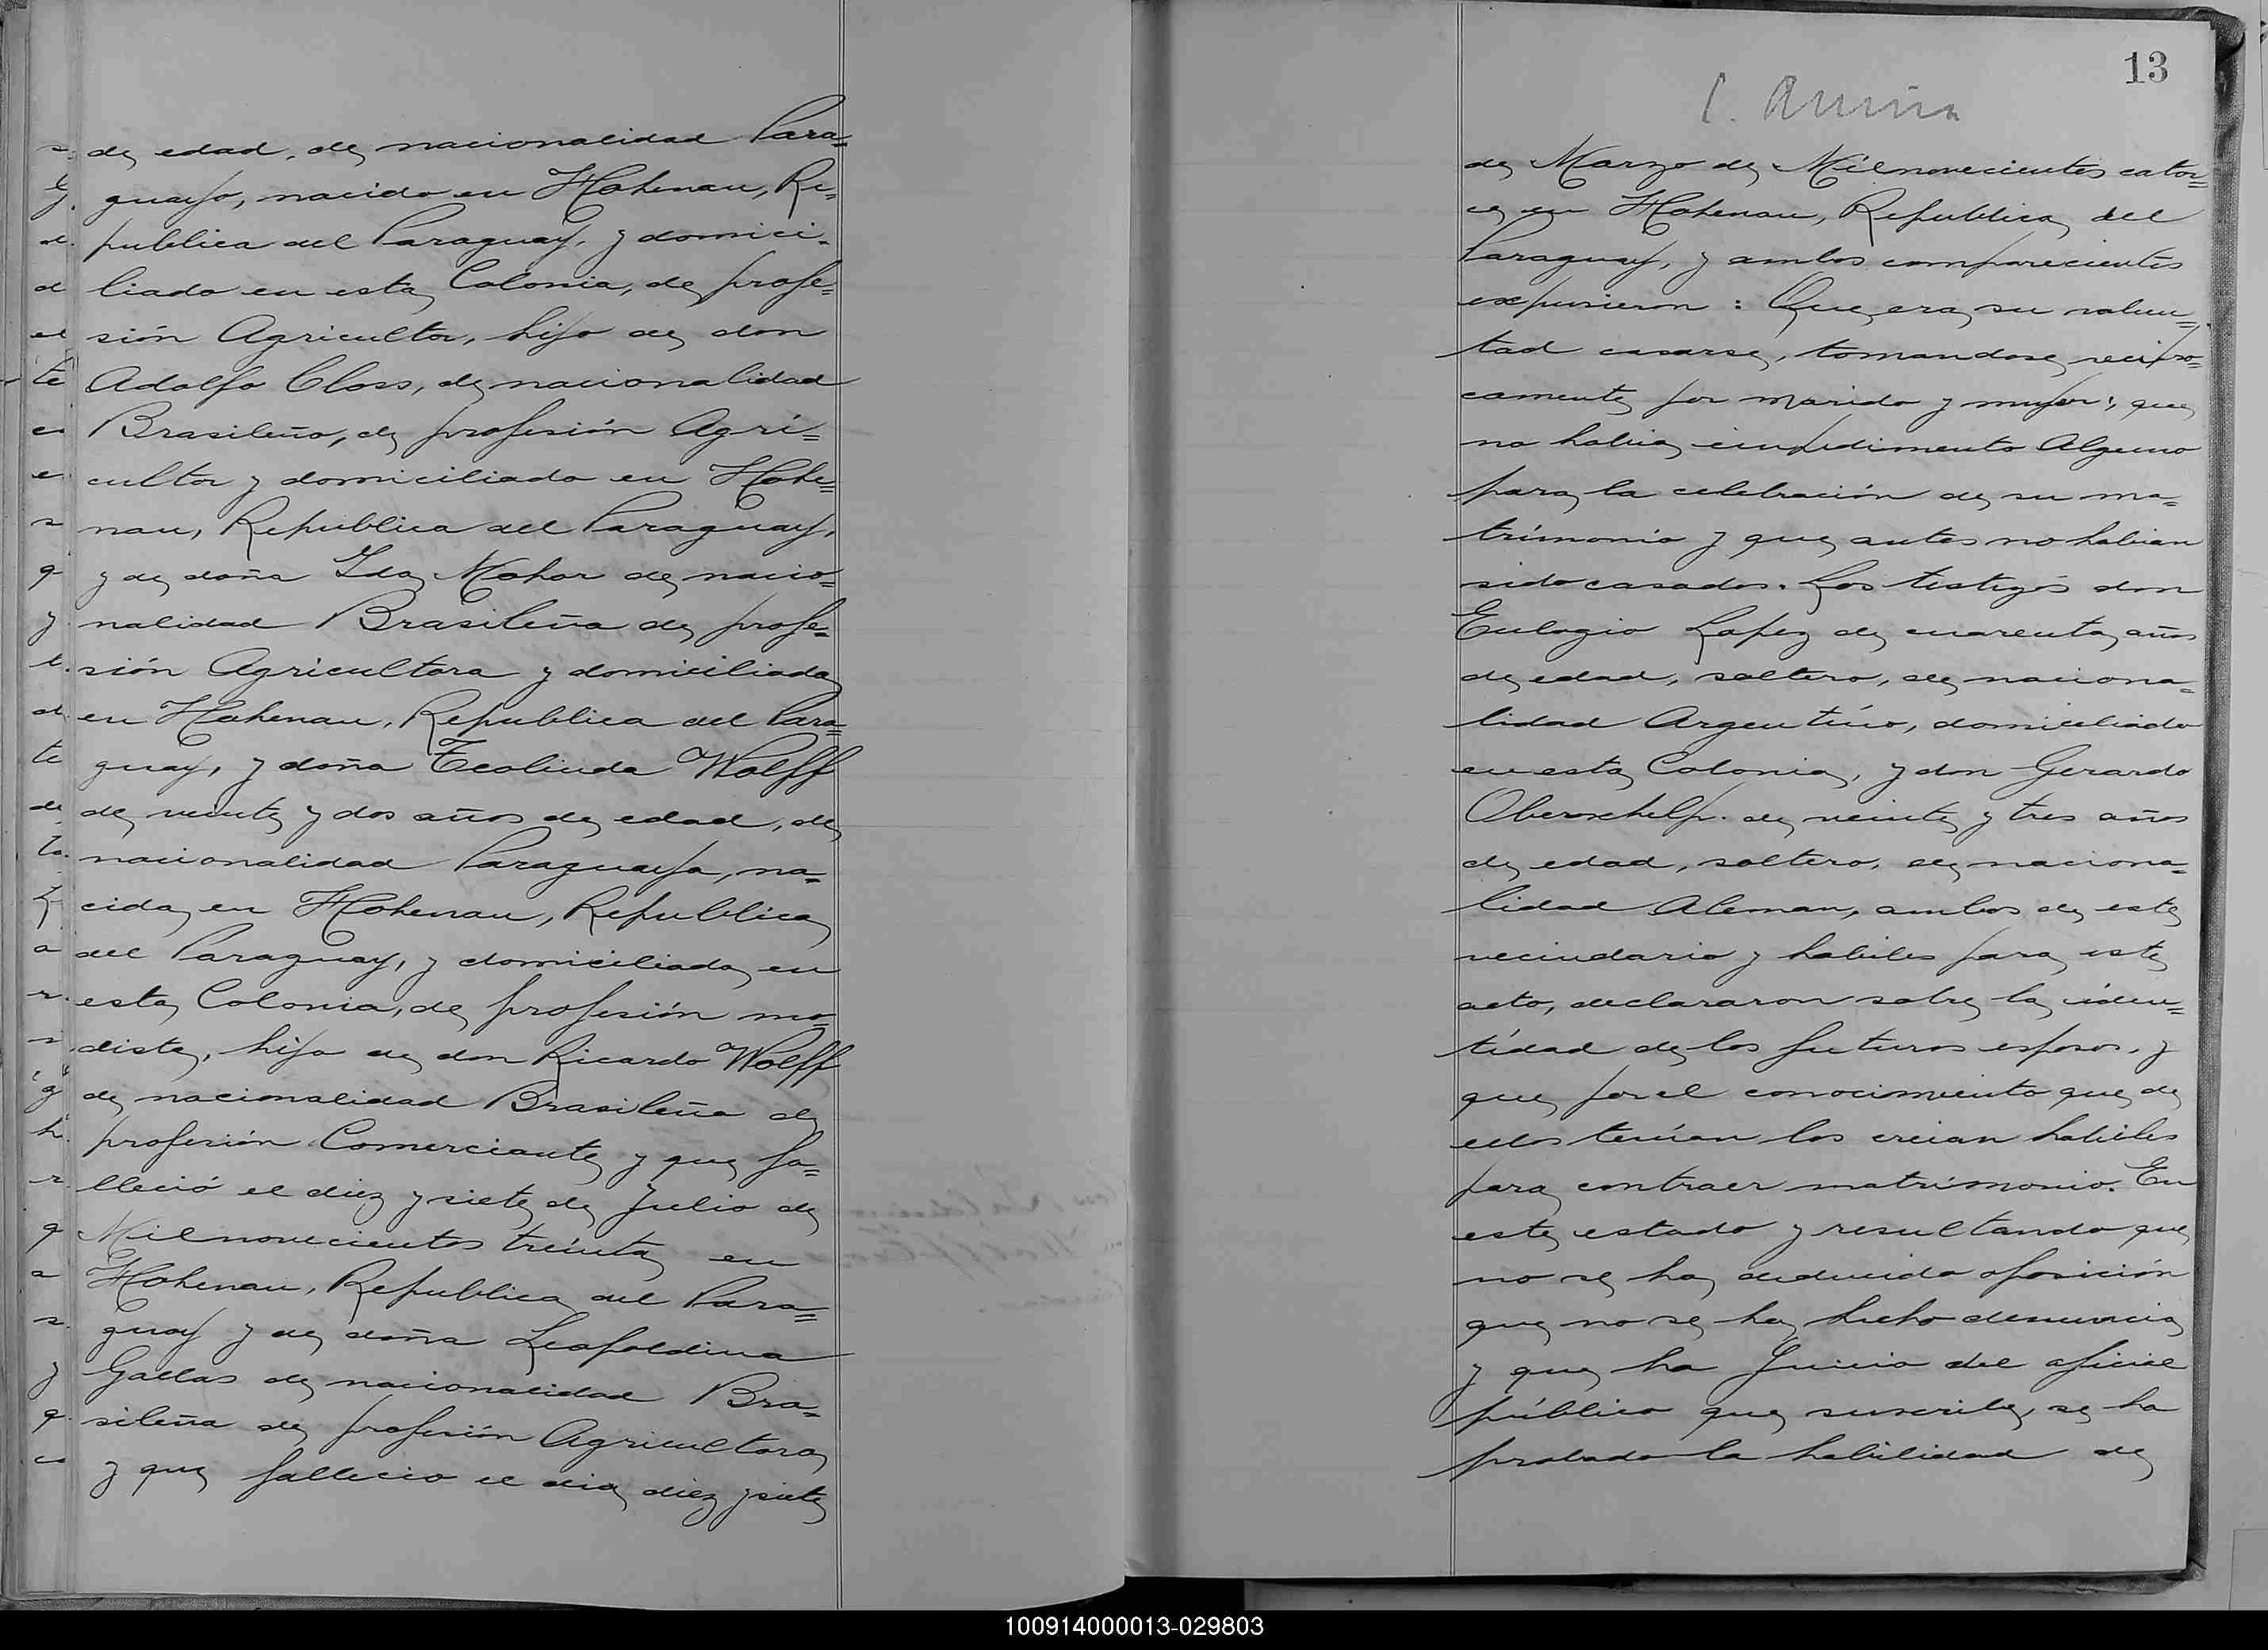 de edad, de nacionalidad Para=
guayo, nacido en Hohenau, Re=
publica del Paraguay, y domici=
liado en esta Colonia, de profe=
sión Agricultor, hijo de don
Adolfo Closs, de nacionalidad
Brasileño, de profesión Agri=
cultor y domiciliado en Hohe=
nau, Republica del Paraguay,
y de doña Ida Mohor de nacio=
nalidad Brasileña de profe=
sión Agricultora y domiciliada
en Hohenau, Republica del Para=
guay, y doña Teolinda Wolff
de veinte y dos años de edad, de
nacionalidad Paraguaya, na=
cida en Hohenau, Republica
del Paraguay, y domiciliada en
esta Colonia, de profesión mo=
dista, hija de don Ricardo Wolff
de nacionalidad Brasileña de
profesión Comerciante y que fa=
lleció el diez y siete de Julio de
Milnovecientos treinta en
Hohenau, Republica del Para=
guay y de doña Leopoldina
Gallas de nacionalidad Bra=
sileña de profesión Agricultora
y que fallecio el dia diez y siete
13
de Marzo de Milnovecientos cator=
ce en Hohenau, Republica del
Paraguay, y ambos comparecientes
expusieron: Que era su volun=
tad casarse, tomandose recipro=
camente por marido y mujer; que
no habia impedimento Alguno
para la celebración de su ma=
trimonio y que antes no habian
sido casados. Los testigos don
Eulogio Lopez de cuarenta años
de edad, soltero, de naciona=
lidad Argentino, domiciliado
en esta Colonia, y don Gerardo
Oberschelp. de veinte y tres años
de edad, soltero, de naciona=
lidad Aleman, ambos de este
vecindario y habiles para este
acto, declararon sobre la iden=
tidad de los futuros esposos, y
que por el conocimiento que de
ellos tenian los creian habiles
para contraer matrimonio. En
este estado y resultando que
no se ha deducido oposición
que no se ha hecho denuncia
y que ha Juicio del oficial
público que suscribe, se ha
probado la habilidad de
100914000013-029803